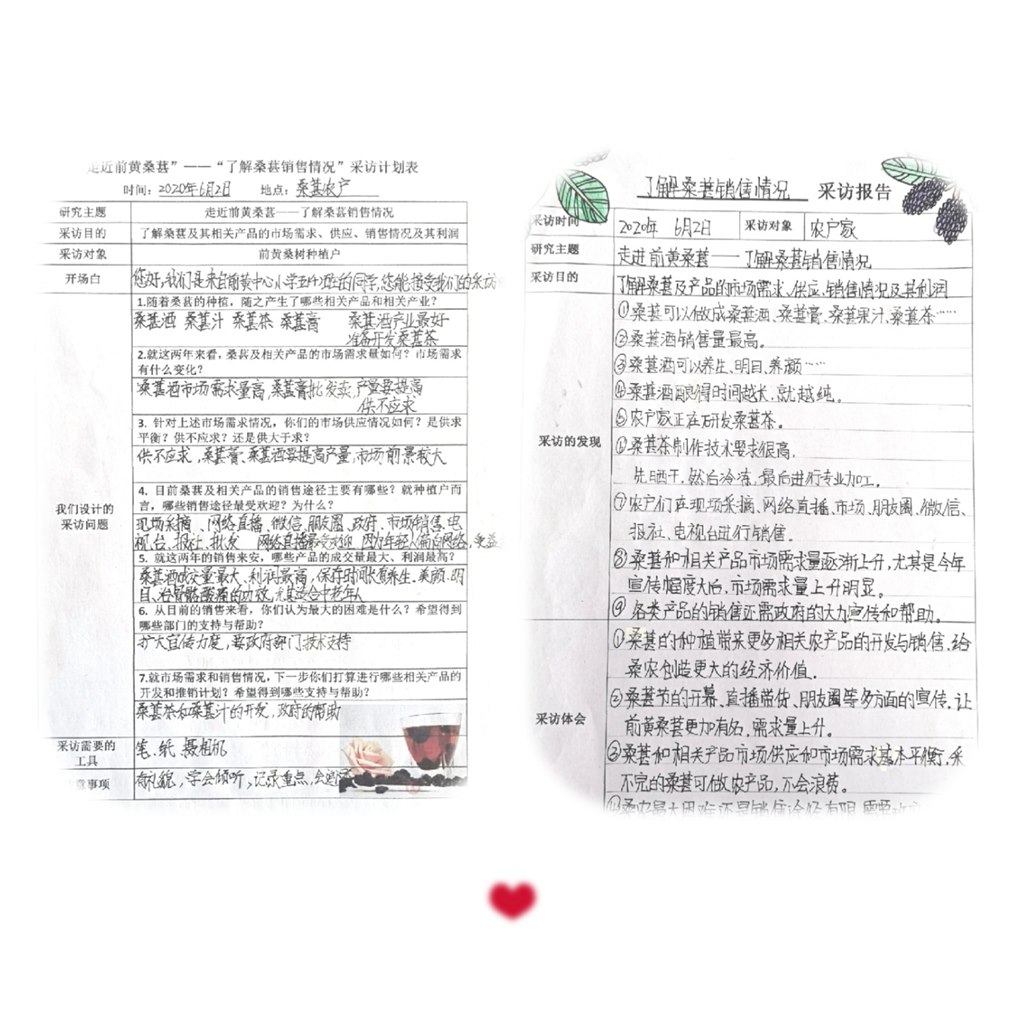 走近前黄桑葚”——“了解桑葚销售情况”采访计划表
时间：2020年6月2日 地点：桑葚农户
研究主题 走近前黄桑葚——了解桑葚销售情况
采访目的 了解桑葚及其相关产品的市场需求、供应、销售情况及其利润
采访对象 前黄桑树种植户
开场白 您好，我们是来自前黄中心小学五(1)班的同学,您能接受我们的采访
我们设计的
采访问题
1.随着桑葚的种植，随之产生了哪些相关产品和相关产业？
桑葚酒 桑葚汁 桑葚茶 桑葚膏 桑葚酒产业最好
准备开发桑葚茶
2.就这两年来看，桑葚及相关产品的市场需求量如何？市场需求
有什么变化？
桑葚酒市场需求量高,桑葚膏批发卖,产量要提高
供不应求
3. 针对上述市场需求情况，你们的市场供应情况如何？是供求
平衡？供不应求？还是供大于求？
供不应求,桑葚膏、桑葚酒要提高产量,市场前景较大
4. 目前桑葚及相关产品的销售途径主要有哪些？就种植户而
言，哪些销售途径最受欢迎？为什么？
现场采摘、网络直播、微信、朋友圈、政府、市场销售、电
视台、报社、批发 网络直播最受欢迎 因为年轻人偏向网络,受益
5. 就这两年的销售来安，哪些产品的成交量最大、利润最高？
桑葚酒成交量最大、利润最高,保存时间长,养生、美颜、明
目、的功效,尤其适合中老年人
6. 从目前的销售来看，你们认为最大的困难是什么？希望得到
哪些部门的支持与帮助？
扩大宣传力度,要政府部门技术支持
7.就市场需求和销售情况，下一步你们打算进行哪些相关产品的
开发和推销计划？希望得到哪些支持与帮助？
桑葚茶和桑葚汁的开发,政府的帮助
采访需要的
工具
笔、纸、摄相机
意事项 有礼貌,学会倾听,记录重点,会
了解桑葚销售情况 采访报告
采访时间 2020年 6月2日 采访对象 农户家
研究主题 走进前黄桑葚——了解桑葚销售情况
采访目的 了解桑葚及产品的市场需求、供应、销售情况及其利润
采访的发现
①桑葚可以做成桑葚酒、桑葚膏、桑葚果汁、桑葚茶……
②桑葚酒销售量最高。
③桑葚酒可以养生、明目、养颜……
④桑葚酒酿得时间越长,就越纯。
⑤农户家正在研发桑葚茶。
①桑葚茶制作技术要求很高,
先晒干,然后冷冻,最后进行专业加工。
⑦农户们在现场采摘、网络直播、市场、朋友圈、微信、
报社、电视台进行销售。
⑧桑葚和相关产品市场需求量逐渐上升,尤其是今年
宣传幅度大后,市场需求量上升明显。
⑨各类产品的销售还需政府的大力宣传和帮助。
采访体会
①桑葚的种植带来更多相关农产品的开发与销售,给
桑农创造更大的经济价值。
②桑葚节的开幕、直播带货、朋友圈等多方面的宣传,让
前黄桑葚更加有名,需求量上升。
③桑葚和相关产品市场供应和市场需求基本平衡,采
不完的桑葚可做农产品,不会浪费。
桑农最大困难还是销售途径有限,需要